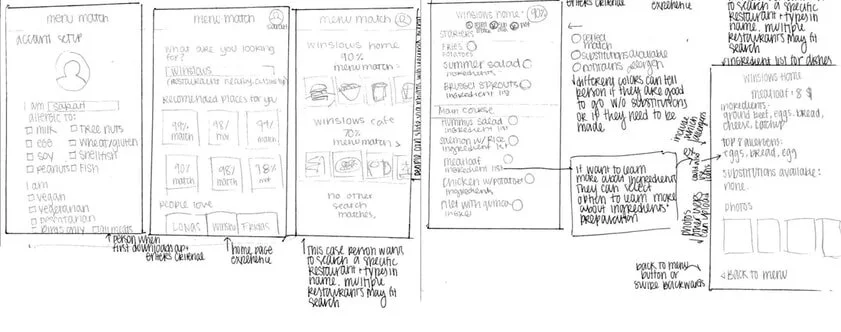 menu match
account setup
I am
allergic to:
milk
tree nuts
egg
wheat/gluten
soy
shellfish
peanuts
fish
I am
vegan
vegetarian
person when
first downloads app
menu match
What are you looking
for?
Winslows
Recommended places for you
99%
match
98%
match
97%
match
90%
match
98%
match
78%
match
people love
home page
experience
menu match
winslows home
90%
menu match
winslows cafe
70%
menu match
no other
search
matches.
This case person wants
to search a specific
restaurant + types in
name. multiple
restaurants may fit
search
winslows home
90%
STARTERS
FRIES
POTATOES
summer salad
ingredients
Brussel sprouts
ingredient list
Main course
Hummus salad
ingredient list
salmon w/ Rice
ingredient list
meatloaf
ingredient list
chicken w/ potato
ingredients
filet with quinoa
match
substitutions available
contains allergen
different colors can tell
person if they are good
to go w/o substitutions
or if they need to be
made
if want to learn
more about ingredients
they can select
option to learn more
about ingredients +
preparation
to search a specific
restaurant + types in
name. multiple
restaurants may fit
search
ingredient list for dishes
Winslows Home
meatloaf: 8 $
ingredients:
ground beef, eggs, bread,
cheese, ketchup
top 8 allergens:
eggs, bread, egg
substitutions available:
none.
photos
< Back to menu
photos
other users
can upload
back to menu
button or
swipe backwards